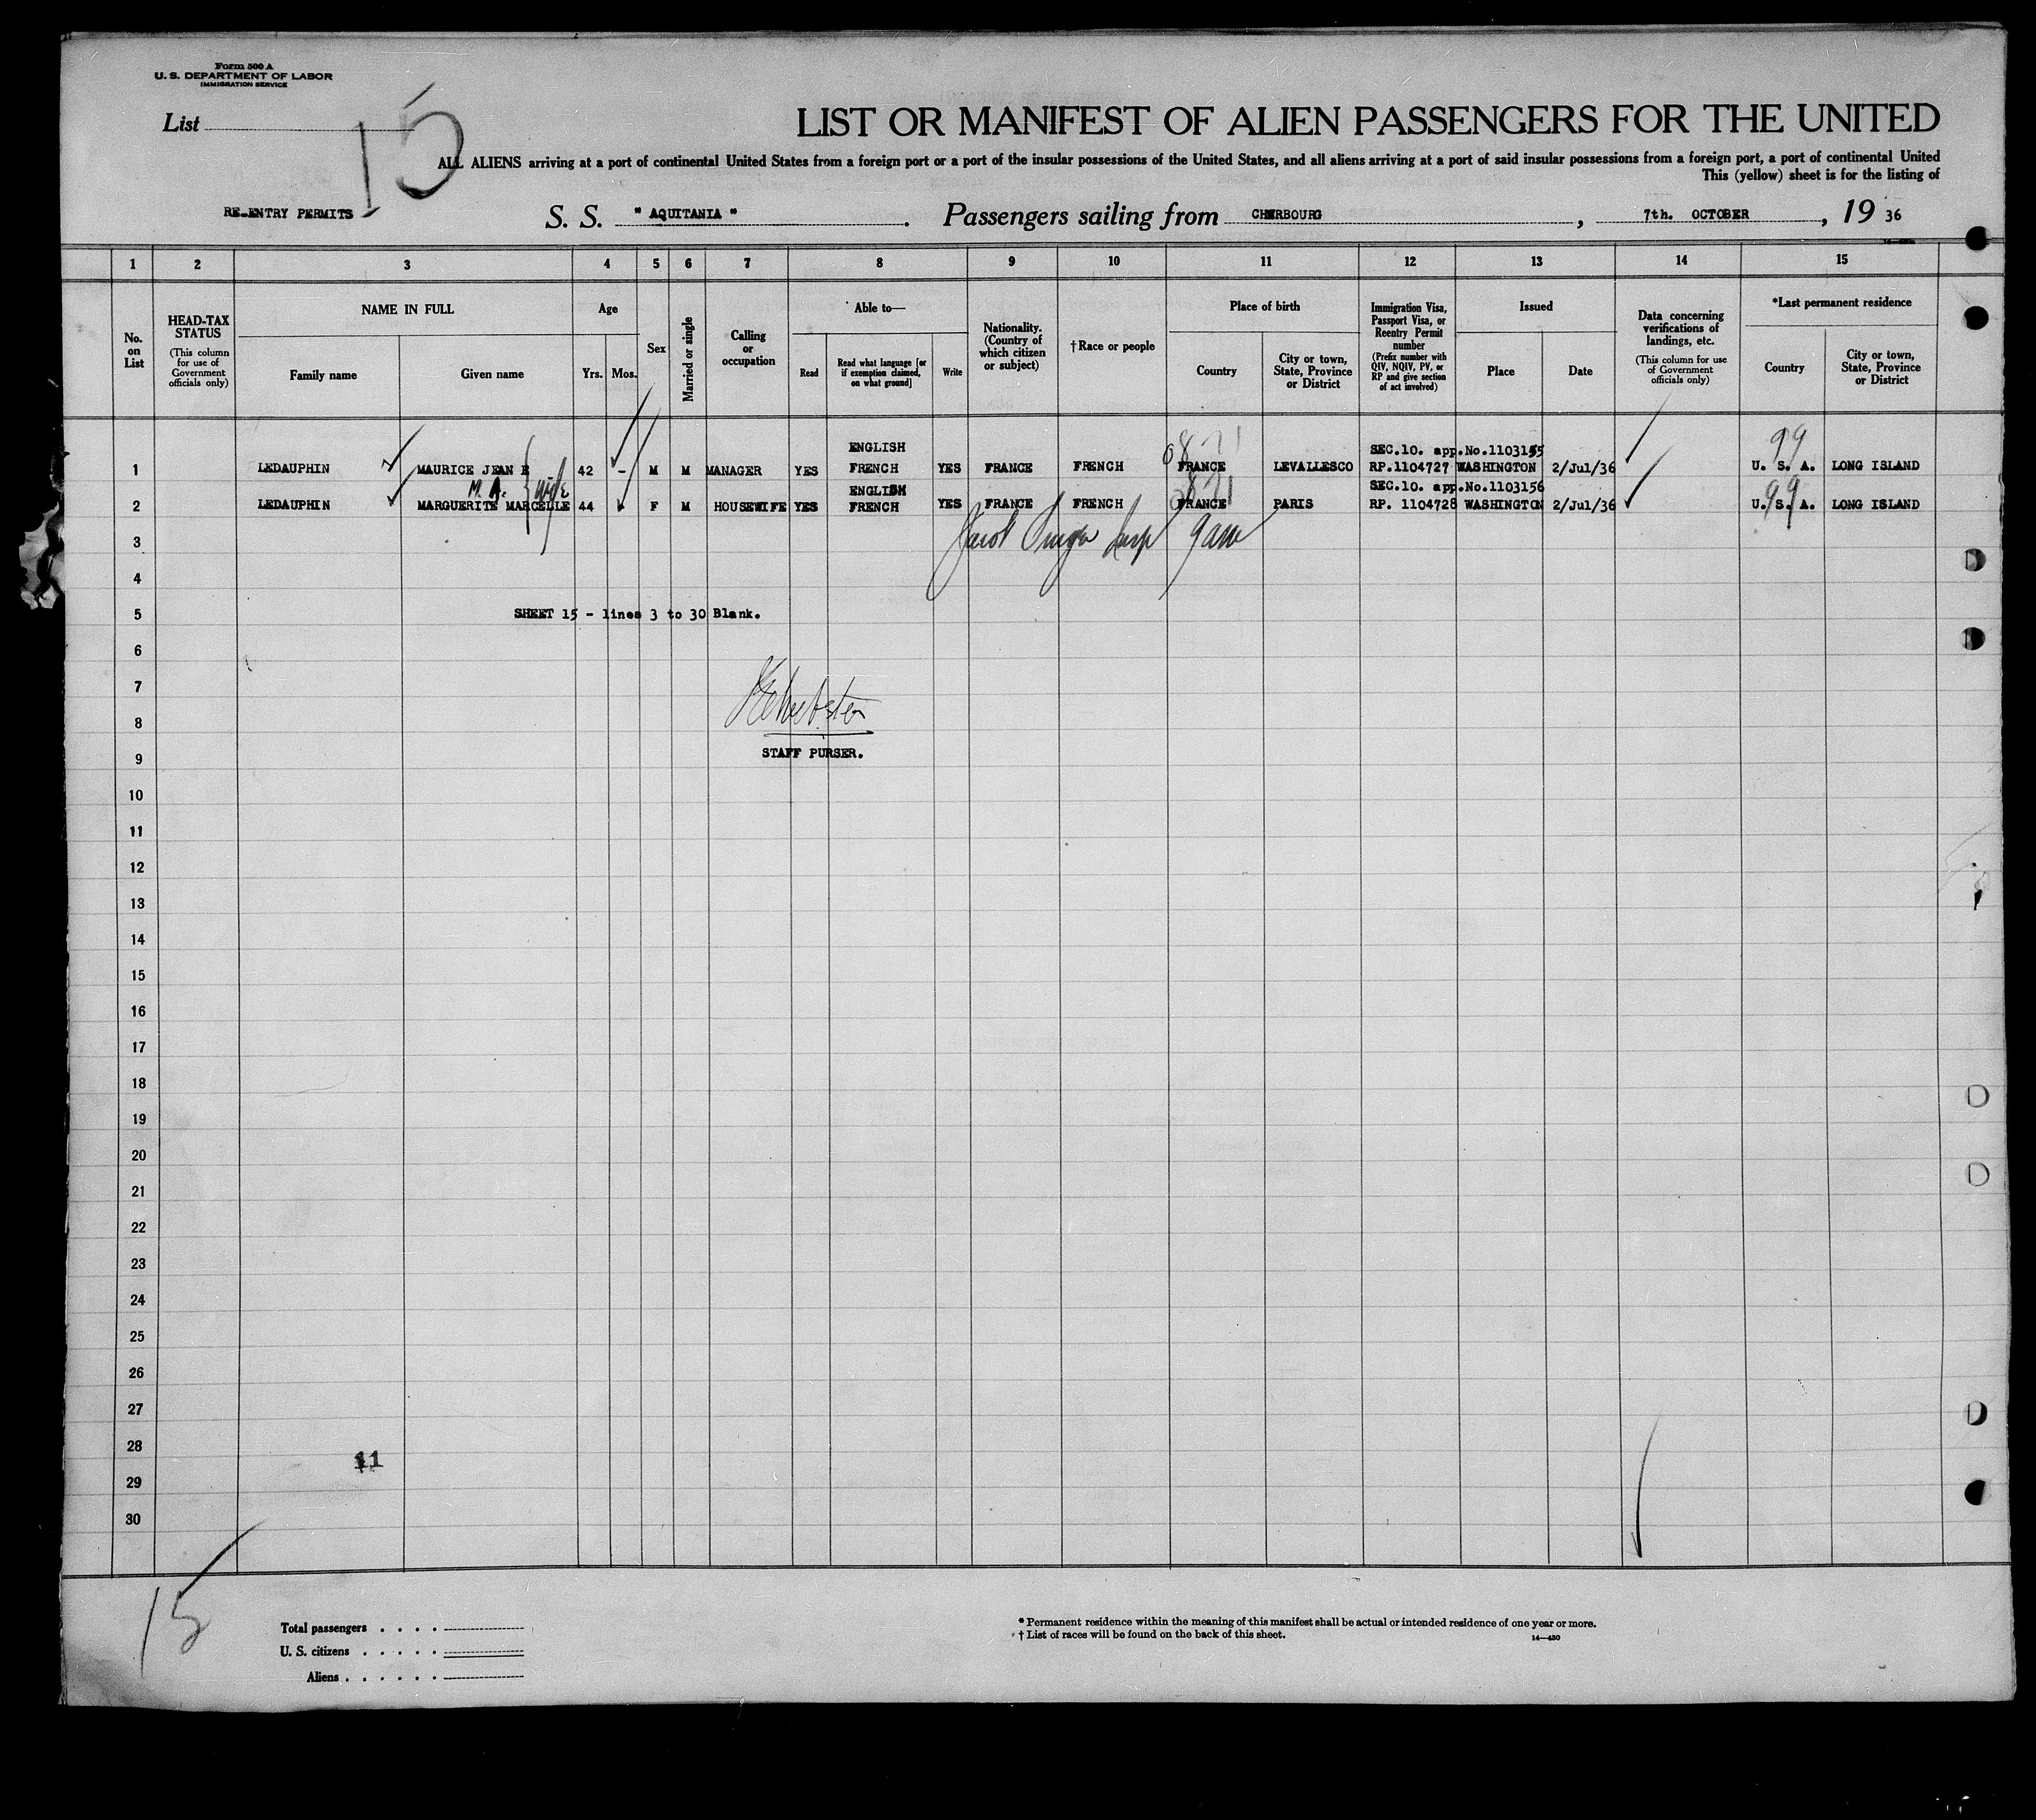 Form 500 A
U. S. DEPARTMENT OF LABOR
IMMIGRATION SERVICE
List 15
LIST OR MANIFEST OF ALIEN PASSENGERS FOR THE UNITED
ALL ALIENS arriving at a port of continental United States from a foreign port or a port of the insular possessions of the United States, and all aliens arriving at a port of said insular possessions from a foreign port, a port of continental United
This (yellow) sheet is for the listing of
RE-ENTRY PERMITS S. S. " AQUITANIA " . Passengers sailing from CHERBOURG , 7th. OCTOBER , 19 36
1 2 3 4 5 6 7 8 9 10 11 12 13 14 15
No. on List
HEAD-TAX STATUS
(This column for use of Government officials only)
NAME IN FULL
Family name Given name
Age
Yrs. Mos.
Sex
Married or single
Calling or occupation
Able to—
Read
Read what language [or if exemption claimed, on what ground]
Write
Nationality. (Country of which citizen or subject)
†Race or people
Place of birth
Country
City or town, State, Province or District
Immigration Visa, Passport Visa, or Reentry Permit number
(Prefix number with QIV, NQIV, PV, or RP and give section of act involved)
Issued
Place Date
Data concerning verifications of landings, etc.
(This column for use of Government officials only)
*Last permanent residence
Country
City or town, State, Province or District
ENGLISH SEC.10. app.No.1103155 99
1 LEDAUPHIN MAURICE JEAN E 42 - M M MANAGER YES FRENCH YES FRANCE FRENCH FRANCE LEVALLESCO RP.1104727 WASHINGTON 2/Jul/36 U. S. A. LONG ISLAND
M. A. wife ENGLISH SEC.10. app.No.1103156 99
2 LEDAUPHIN MARGUERITE MARCELLE 44 F M HOUSEWIFE YES FRENCH YES FRANCE FRENCH FRANCE PARIS RP. 1104728 WASHINGTON 2/Jul/36 U. S. A. LONG ISLAND
3
4
5 SHEET 15 - lines 3 to 30 Blank.
6
7
8
9 STAFF PURSER.
10
11
12
13
14
15
16
17
18
19
20
21
22
23
24
25
26
27
28
11
29
30
15
Total passengers . . . .
U. S. citizens . . . . .
Aliens . . . . . .
* Permanent residence within the meaning of this manifest shall be actual or intended residence of one year or more.
† List of races will be found on the back of this sheet.
14—430